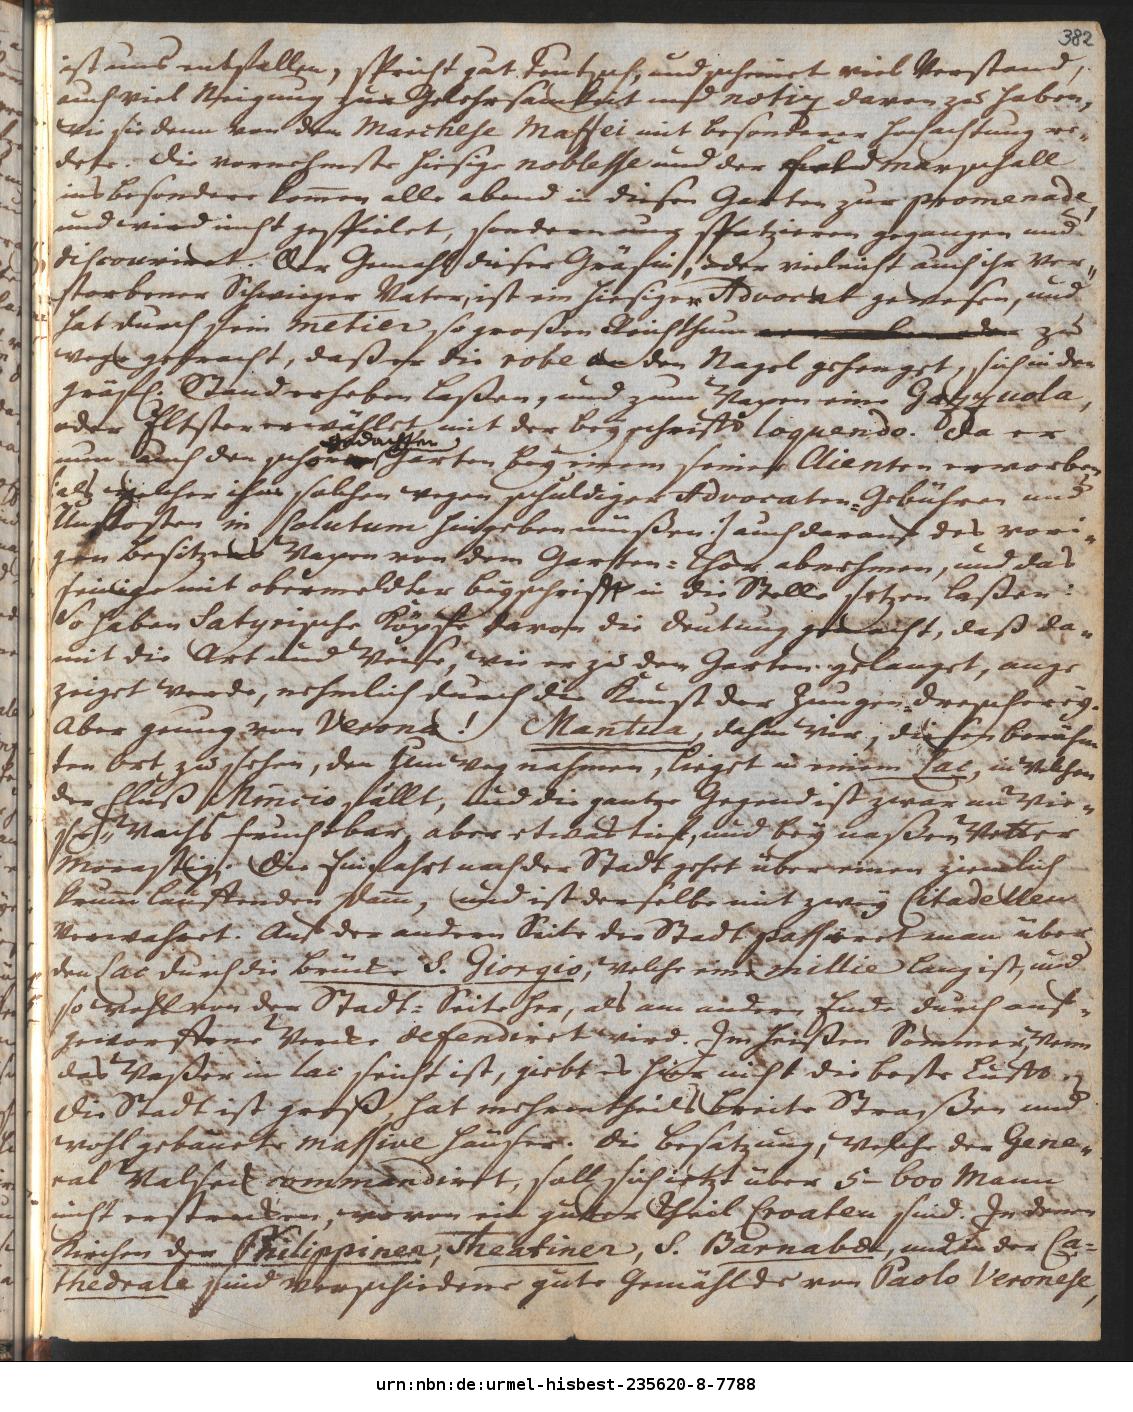 382
ist uns entfallen, spricht gut Teutsch, und scheinet viel Verstand,
auch viel Neigung zur Gelehrsamkeit und notiz davon zu haben,
wie sie denn von dem Marchese Maffei mit besonderer Hochachtung re-
dete. Die vornehmste hiesige noblesse und der Feldmarschall
insbesondere kommen alle abend in diesen Garten zur promenade,
und wird nicht gespielet, sondern nur spatzieren gegangen und
discouriret. Der Gemahl dieser Gräfin, oder vieleicht auch ihr ver-
storbener Schwieger Vater, ist ein hiesiger Advocat gewesen, und
hat durch sein metier so großen Reichthum zu
wege gebracht, daß er die robe an den Nagel gehenget, sich in den
gräfl. Stand erheben laßen, und zum Wapen eine
oder Elster erwählet, mit der beyschrifft loquendo. Da er
gedachten
nun auch den schönen Garten bey einem seiner Clienten erworben
(als welcher ihm solchen wegen schuldiger Advocaten-Gebühren und
Unkosten in solutum hingeben müßen) auch darauf des vori-
gen Besitzers Wapen von dem Garten-Thor abnehmen, und das
seinige mit obermeldter beyschrifft in die Stelle setzen laßen:
So haben Satyrische Köpffe davon die deutung gemacht, daß da-
mit die Art und Weise, wie er zu dem Garten gelanget, ange
zeiget werde, nehmlich durch die Kunst der Zungen-drescherey.
Aber genug von Verona! Mantua, dahin wir, diesen berühm
ten Ort zu sehen, den Umweg nahmen, lieget in einem Lac, in welchen
der Fluß Mincio fällt, und die gantze Gegend ist zwar an Wie-
se-wachs fruchtbar, aber etwas tief, und bey naßem Wetter
Morastig. Die Einfahrt nach der Stadt gehet über einen ziemlich
krumm lauffenden Damm, und ist derselbe mit zwey Citadellen
verwahret. Auf der andern Seite der Stadt passiret man über
den Lac durch die Brücke S. Giorgio, welche eine millie lang ist, und
so wohl von der Stadt-Seite her, als am andern Ende durch auf-
geworffene Wercke defendiret wird. Im heißen Sommer, wenn
das Waßer im Lac seicht ist, giebt es hier nicht die beste Lufft.
Die Stadt ist groß, hat mehrentheils breite Straßen und
wohl gebauete massive Häuser. Die Besatzung, welche der Gene-
ral commandiret, soll sich jetzt über 5-600 Mann
nicht erstrecken, wovon ein guter Theil Croaten sind. In denen
Kirchen der Philippiner, Theatiner, S. Barnabae, und in der Ca-
thedrale sind verschiedene gute Gemählde von Paolo Veronese,
urn:nbn:de:urmel-hisbest-235620-8-7788